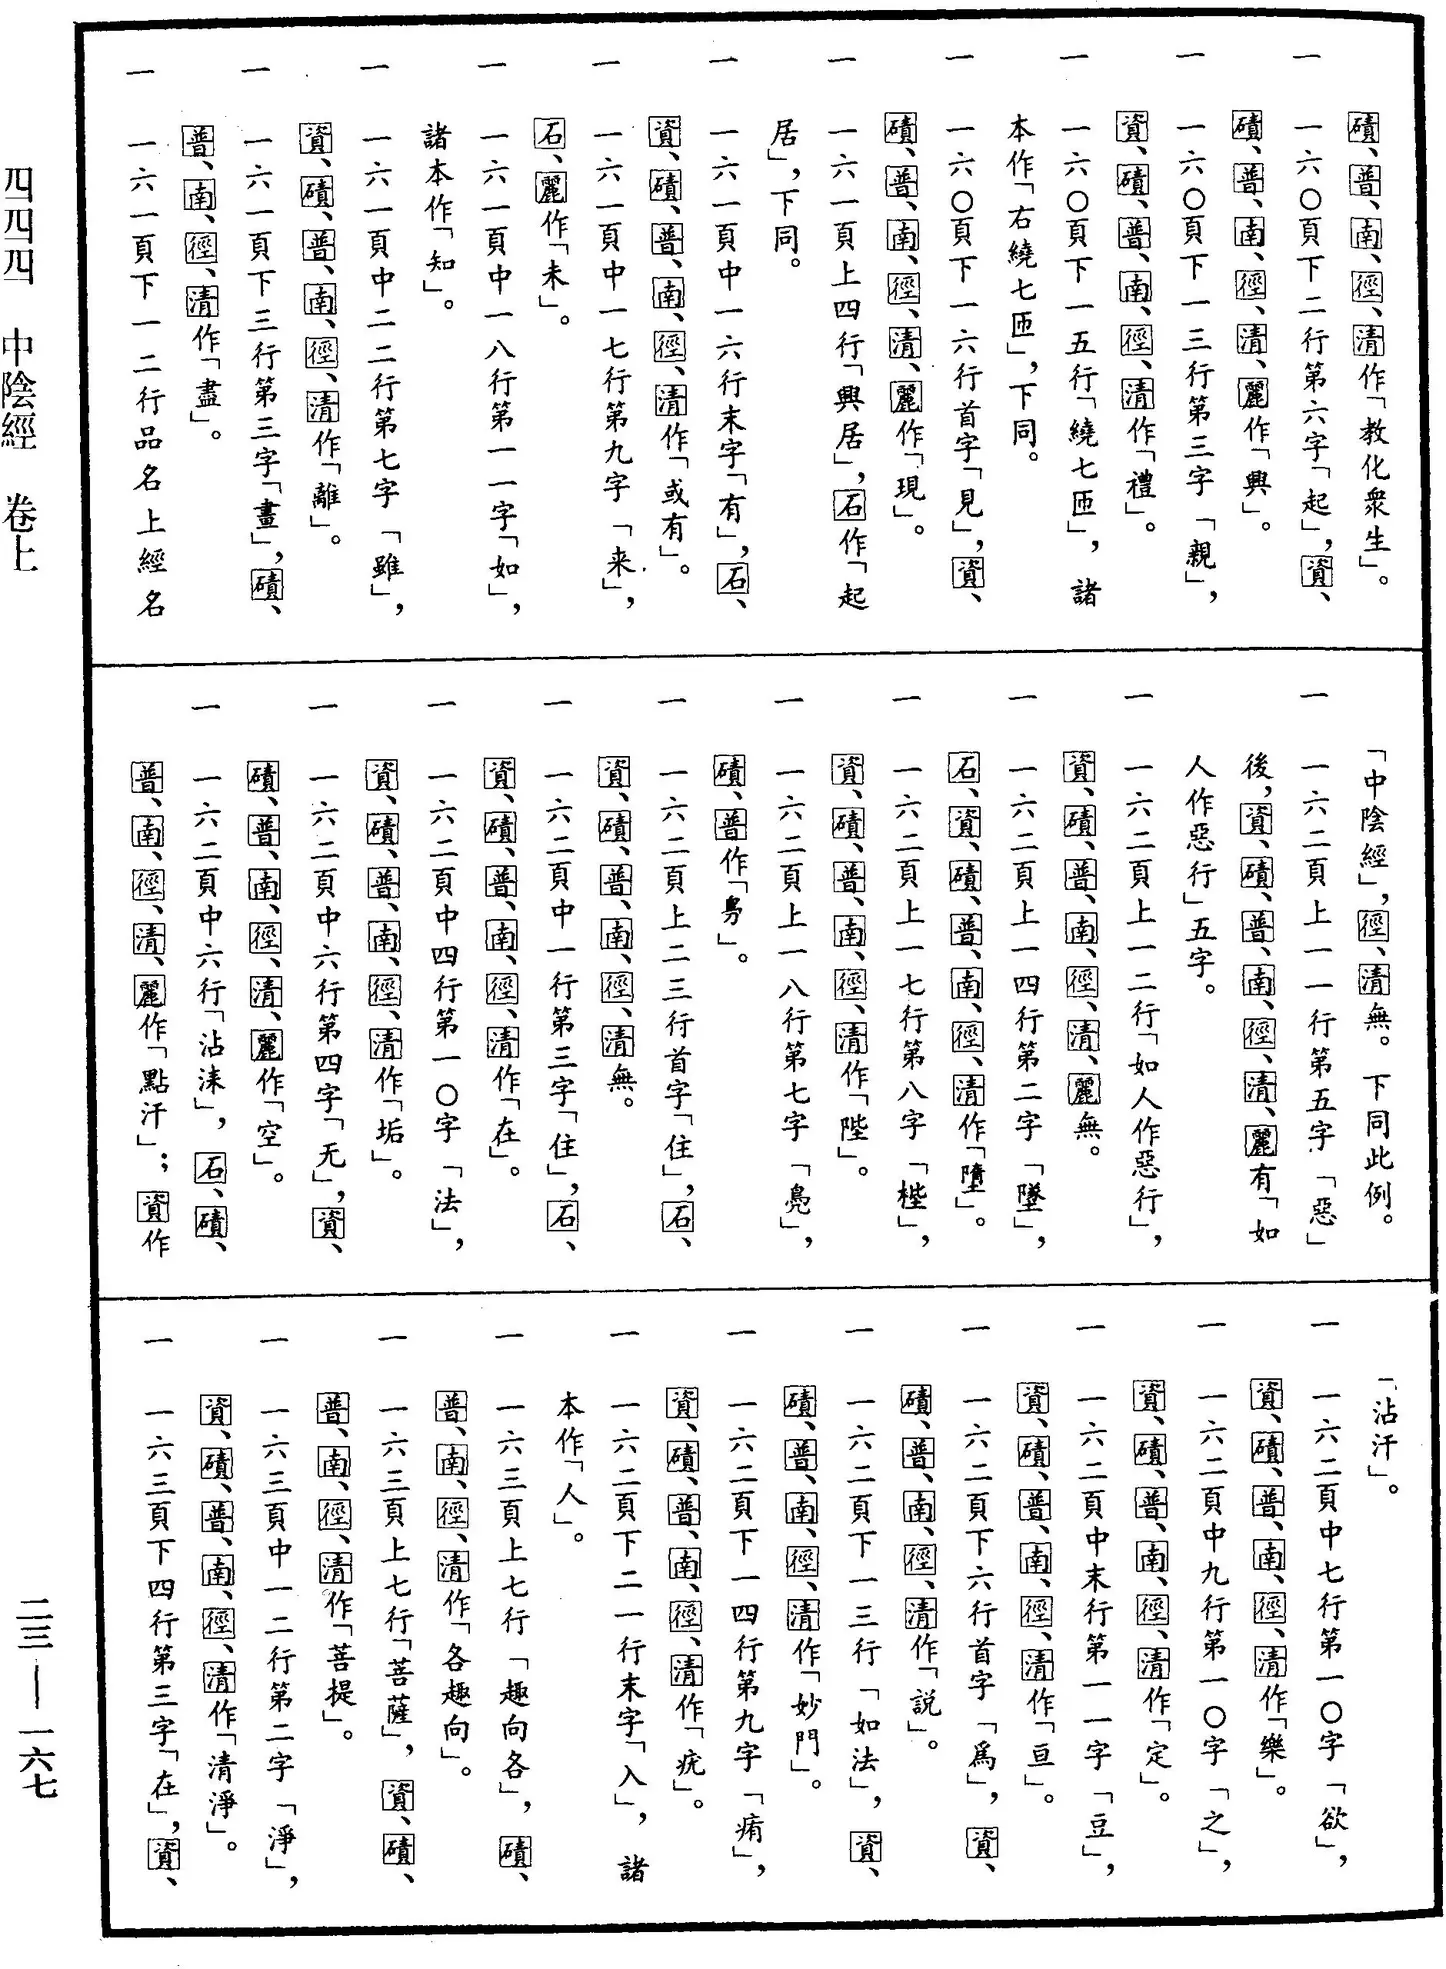 磧、普、南、徑、清作「教化衆生」。
一 一六〇頁下二行第六字「起」，資、
磧、普、南、徑、清、麗作「興」。
一 一六〇頁下一三行第三字「親」，
資、磧、普、南、徑、清作「禮」。
一 一六〇頁下一五行「繞七匝」，諸
本作「右繞七匝」，下同。
一 一六〇頁下一六行首字「見」，資、
磧、普、南、徑、清、麗作「現」。
一 一六一頁上四行「興居」，石作「起
居」，下同。
一 一六一頁中一六行末字「有」，石、
資、磧、普、南、徑、清作「或有」。
一 一六一頁中一七行第九字「来」，
石、麗作「未」。
一 一六一頁中一八行第一一字「如」，
諸本作「知」。
一 一六一頁中二二行第七字「雖」，
資、磧、普、南、徑、清作「離」。
一 一六一頁下三行第三字「畫」，磧、
普、南、徑、清作「盡」。
一 一六一頁下一二行品名上經名
「中陰經」，徑、清無。下同此例。
一 一六二頁上一一行第五字「惡」
後，資、磧、普、南、徑、清、麗有「如
人作惡行」五字。
一 一六二頁上一二行「如人作惡行」，
資、磧、普、南、徑、清、麗無。
一 一六二頁上一四行第二字「墜」，
石、資、磧、普、南、徑、清作「墮」。
一 一六二頁上一七行第八字「梐」，
資、磧、普、南、徑、清作「陛」。
一 一六二頁上一八行第七字「鳧」，
磧、普作「」。
一 一六二頁上二三行首字「住」，石、
資、磧、普、南、徑、清無。
一 一六二頁中一行第三字「住」，石、
資、磧、普、南、徑、清作「在」。
一 一六二頁中四行第一〇字「法」，
資、磧、普、南、徑、清作「垢」。
一 一六二頁中六行第四字「无」，資、
磧、普、南、徑、清、麗作「空」。
一 一六二頁中六行「沾洡」，石、磧、
普、南、徑、清、麗作「點汗」；資作
「沾汗」。
一 一六二頁中七行第一〇字「欲」，
資、磧、普、南、徑、清作「樂」。
一 一六二頁中九行第一〇字「之」，
資、磧、普、南、徑、清作「定」。
一 一六二頁中末行第一一字「豆」，
資、磧、普、南、徑、清作「亘」。
一 一六二頁下六行首字「爲」，資、
磧、普、南、徑、清作「説」。
一 一六二頁下一三行「如法」，資、
磧、普、南、徑、清作「妙門」。
一 一六二頁下一四行第九字「痏」，
資、磧、普、南、徑、清作「疣」。
一 一六二頁下二一行末字「入」，諸
本作「人」。
一 一六三頁上七行「趣向各」，磧、
普、南、徑、清作「各趣向」。
一 一六三頁上七行「菩薩」，資、磧、
普、南、徑、清作「菩提」。
一 一六三頁中一二行第二字「淨」，
資、磧、普、南、徑、清作「清淨」。
一 一六三頁下四行第三字「在」，資、
四四四 中陰經 卷上
二三—一六七